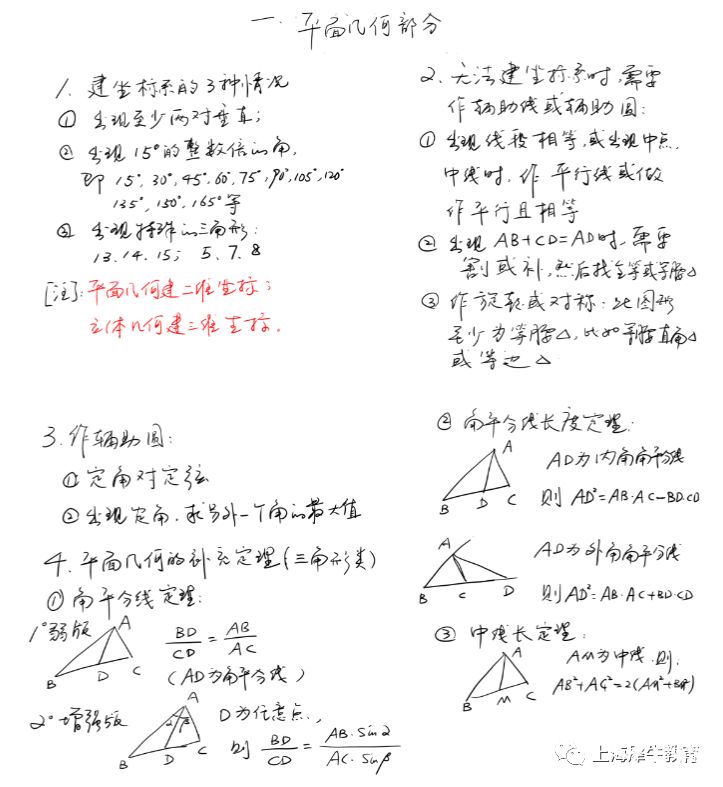 一. 平面几何部分
1. 建坐标系的3种情况
① 出现至少两对垂直；
② 出现15°的整数倍的角,
即 15°, 30°, 45°, 60°, 75°, 90°, 105°, 120°
135°, 150°, 165° 等
③ 出现特殊的三角形:
13. 14. 15； 5. 7. 8
[注]: 平面几何建二维坐标；
立体几何建三维坐标.
2. 无法建坐标系时, 需要
作辅助线或辅助圆:
① 出现线段相等, 或出现中点,
中线时, 作平行线或做
作平行且相等
② 出现 AB+CD=AD时, 需要
割或补, 然后找全等或等腰△
③ 作旋转或对称: 此图形
至少为等腰△, 比如等腰直角△
或等边△
3. 作辅助圆:
① 定角对定弦
② 出现定角, 求另外一个角的最大值
4. 平面几何的补充定理(三角形类)
① 角平分线定理:
1° 弱版
A
B D C
BD/CD = AB/AC
(AD为角平分线)
2° 增强版
A
α β
B D C
D为任意点,
则 BD/CD = AB·sinα/AC·sinβ
② 角平分线长度定理:
A
B D C
AD为内角角平分线
则 AD²=AB·AC-BD·CD
A
B C D
AD为外角角平分线
则 AD²=AB·AC+BD·CD
③ 中线长定理:
A
B M C
AM为中线, 则,
AB²+AC²=2(AM²+BM²)
上海犀牛教育